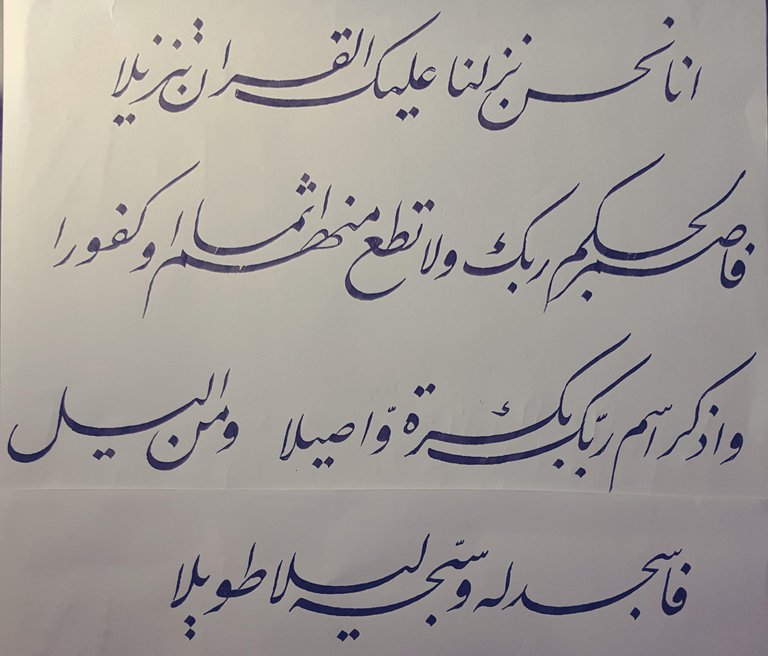 انا نحن نزلنا عليك القران تنزيلا
فاصبر لحكم ربك ولا تطع منهم اثما او كفورا
واذكر اسم ربّك بكرة وّاصيلا ومن اليل
فاسجد له وسبّحه ليلا طويلا